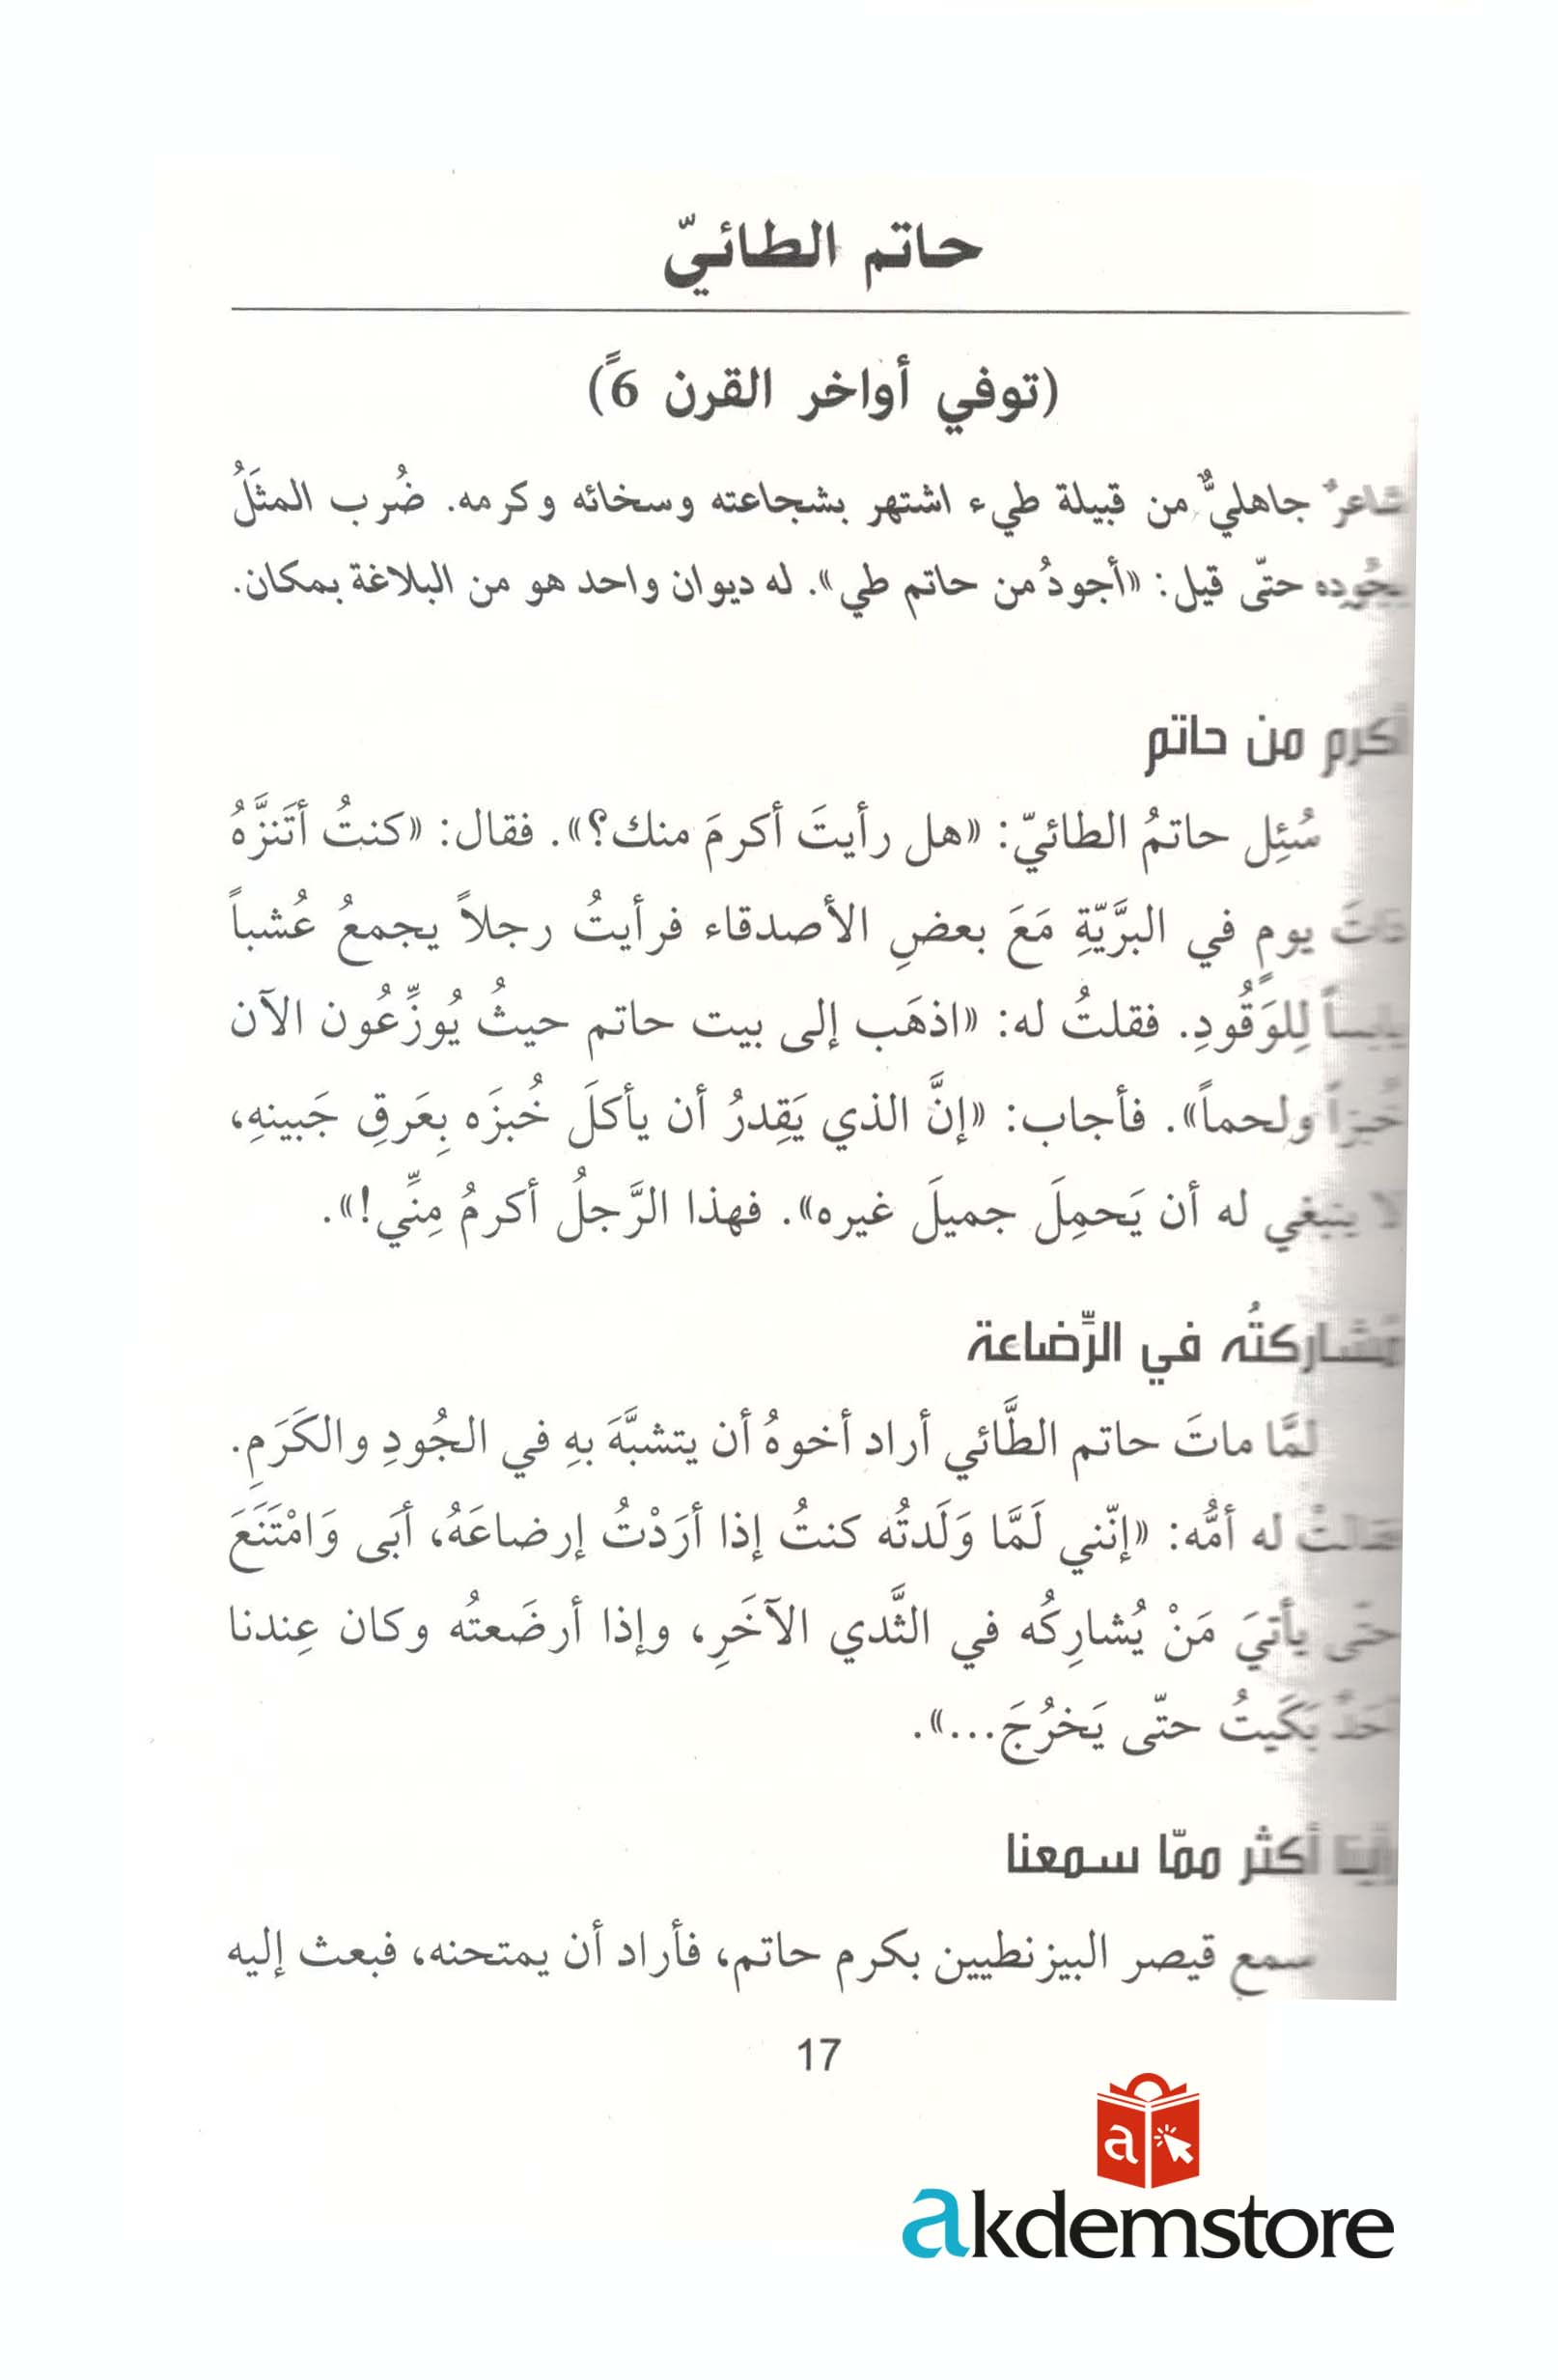 حاتم الطائيّ
(توفي أواخر القرن 6ً)
شاعرٌ جاهليٌّ من قبيلة طيء اشتهر بشجاعته وسخائه وكرمه. ضُرب المثَلُ
بجُوده حتّى قيل: «أجودُ من حاتم طي». له ديوان واحد هو من البلاغة بمكان.
أكرم من حاتم
سُئِل حاتمُ الطائيّ: «هل رأيتَ أكرمَ منك؟». فقال: «كنتُ أتَنزَّهُ
ذاتَ يومٍ في البرَّيّةِ مَعَ بعضِ الأصدقاء فرأيتُ رجلاً يجمعُ عُشباً
يابساً لِلوَقُودِ. فقلتُ له: «اذهَب إلى بيت حاتم حيثُ يُوزِّعُون الآن
خُبزاً ولحماً». فأجاب: «إنَّ الذي يَقِدرُ أن يأكلَ خُبزَه بِعَرقِ جَبينهِ،
لا ينبغي له أن يَحمِلَ جميلَ غيره». فهذا الرَّجلُ أكرمُ مِنِّي!».
مُشاركتُه في الرِّضاعة
لمَّا ماتَ حاتم الطَّائي أراد أخوهُ أن يتشبَّهَ بهِ في الجُودِ والكَرَمِ.
فقالتْ له أمُّه: «إنّني لَمَّا وَلَدتُه كنتُ إذا أرَدْتُ إرضاعَهُ، أبَى وَامْتَنَعَ
حتّى يأتيَ مَنْ يُشارِكُه في الثَّدي الآخَرِ، وإذا أرضَعتُه وكان عِندنا
أحَدٌ بَكَيتُ حتّى يَخرُجَ...».
رأينا أكثر ممّا سمعنا
سمع قيصر البيزنطيين بكرم حاتم، فأراد أن يمتحنه، فبعث إليه
17
a
akdemstore